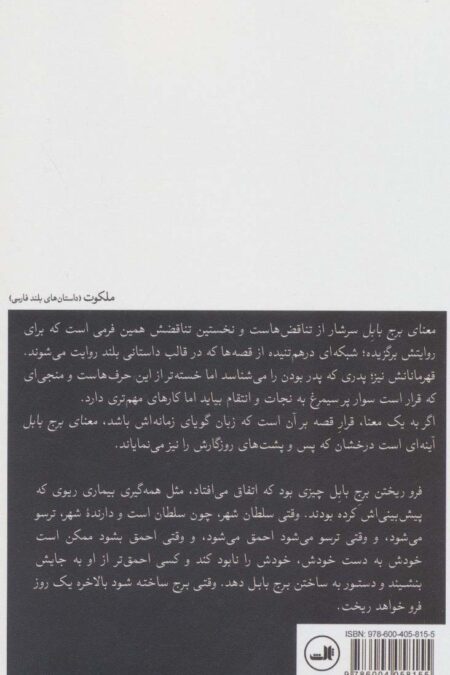 ملکوت (داستان‌های بلند فارسی)
معنای برج بابل سرشار از تناقض‌هاست و نخستین تناقضش همین فرمی است که برای
روایتش برگزیده؛ شبکه‌ای درهم‌تنیده از قصه‌ها که در قالب داستانی بلند روایت می‌شوند.
قهرمانانش نیز؛ پدری که پدر بودن را می‌شناسد اما خسته‌تر از این حرف‌هاست و منجی‌ای
که قرار است سوار پر سیمرغ به نجات و انتقام بیاید اما کارهای مهم‌تری دارد.
اگر به یک معنا، قرار قصه بر آن است که زبان گویای زمانه‌اش باشد، معنای برج بابل
آینه‌ای است درخشان که پس و پشت‌های روزگارش را نیز می‌نمایاند.
فرو ریختن برج بابل چیزی بود که اتفاق می‌افتاد، مثل همه‌گیری بیماری ریوی که
پیش‌بینی‌اش کرده بودند. وقتی سلطان شهر، چون سلطان است و دارندهٔ شهر، ترسو
می‌شود، و وقتی ترسو می‌شود احمق می‌شود، و وقتی احمق بشود ممکن است
خودش به دست خودش، خودش را نابود کند و کسی احمق‌تر از او به جایش
بنشیند و دستور به ساختن برج بابل دهد. وقتی برج ساخته شود بالاخره یک روز
فرو خواهد ریخت.
ISBN: 978-600-405-815-5
ثالث
9786004058155